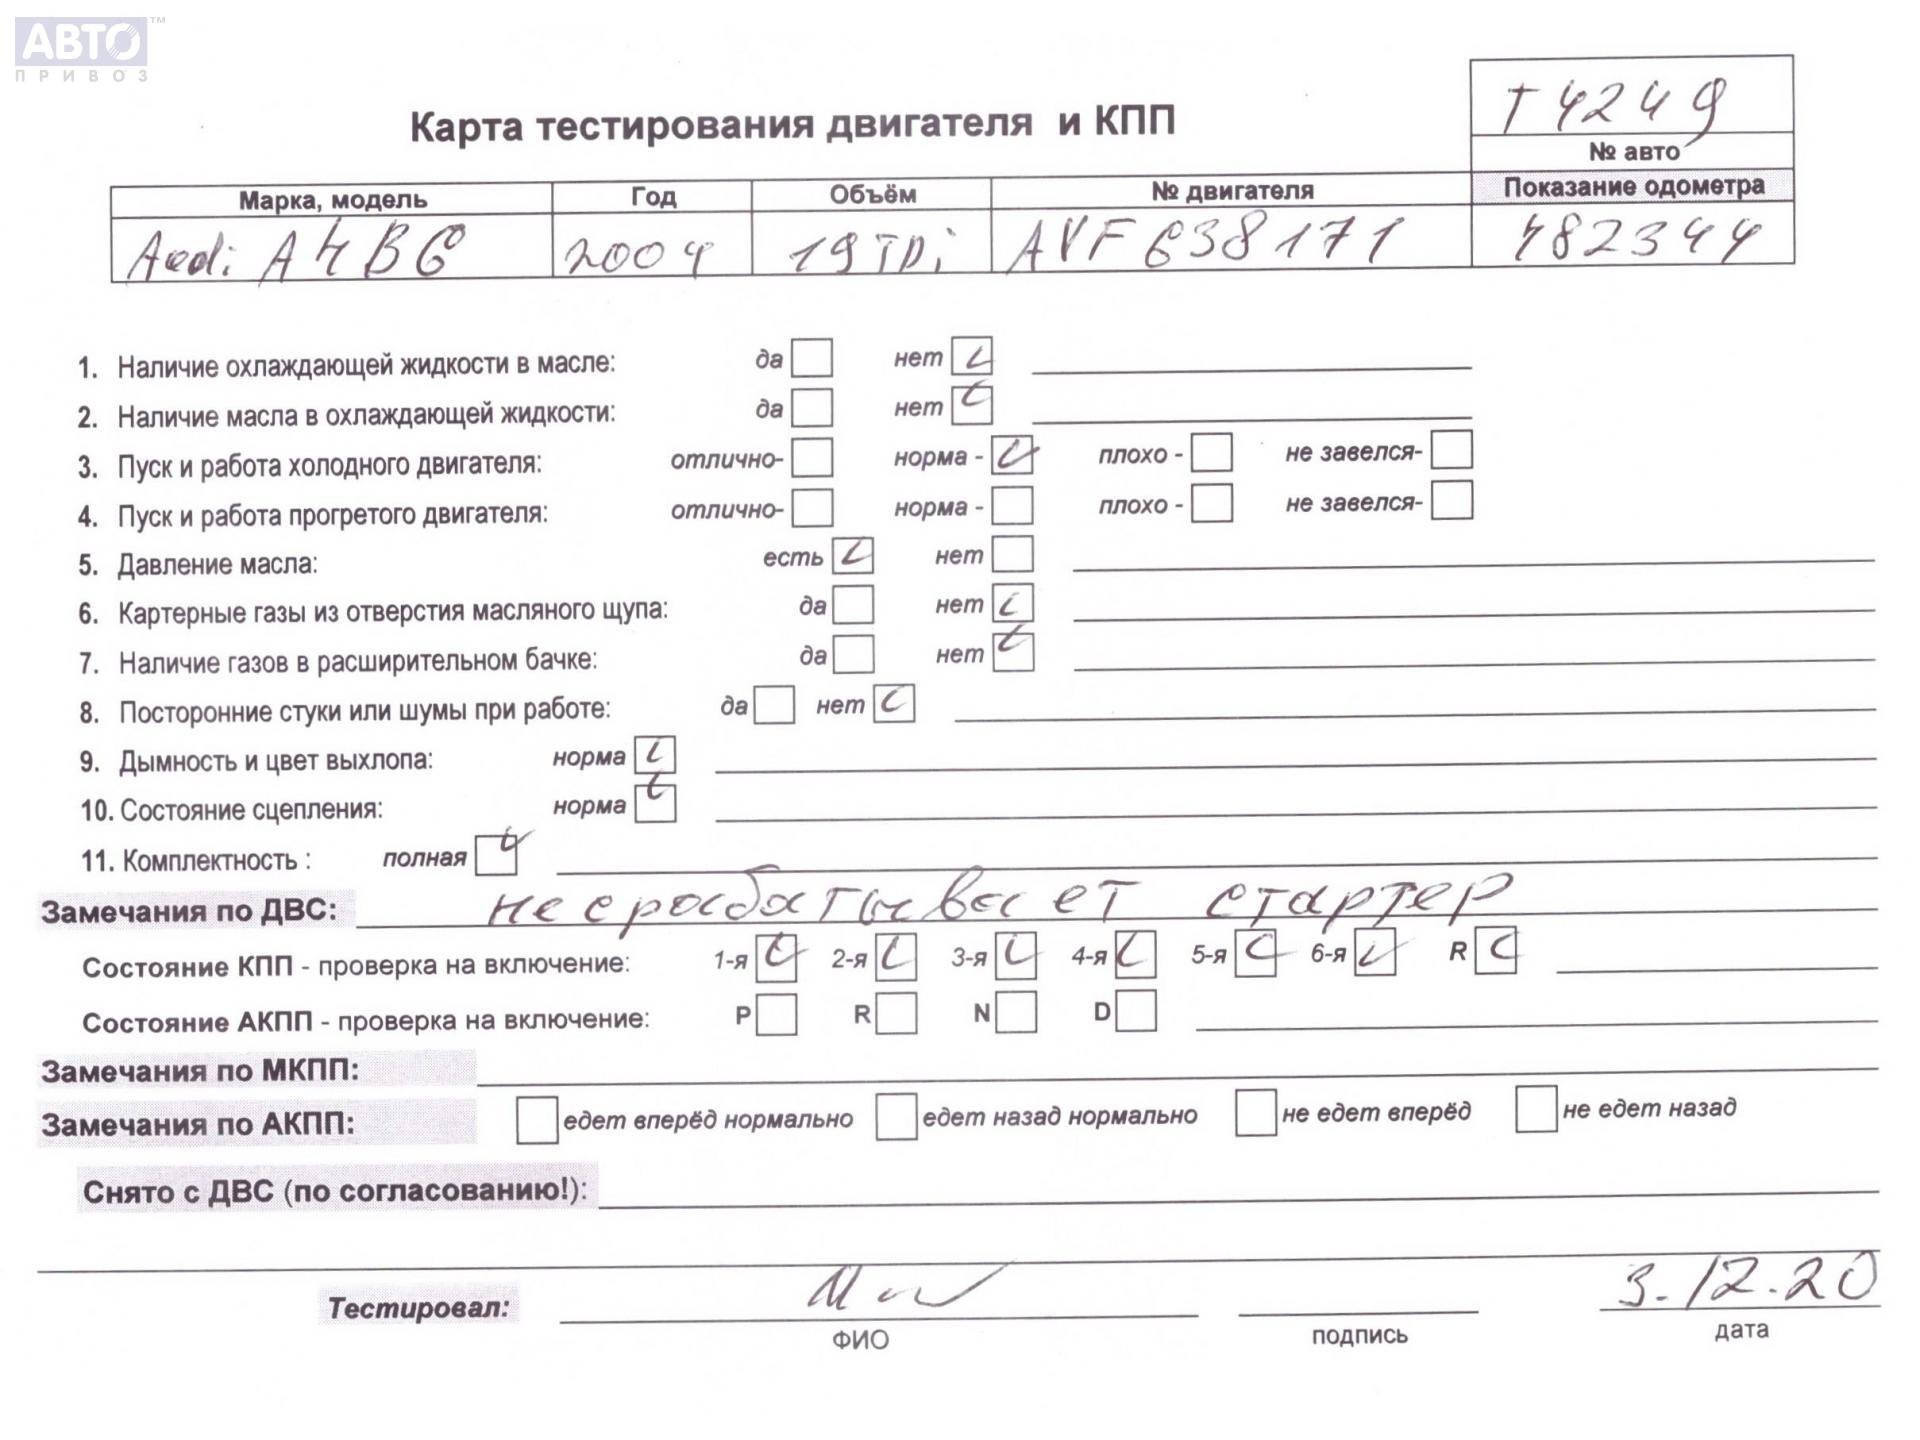 АВТО™
ПРИВОЗ
Т4249
Карта тестирования двигателя и КПП
№ авто
Марка, модель Год Объём № двигателя Показание одометра
Audi A4B6 2004 19TDi AVF638171 482344
1. Наличие охлаждающей жидкости в масле: да нет
2. Наличие масла в охлаждающей жидкости: да нет
3. Пуск и работа холодного двигателя: отлично- норма - плохо - не завелся-
4. Пуск и работа прогретого двигателя: отлично- норма - плохо - не завелся-
5. Давление масла: есть нет
6. Картерные газы из отверстия масляного щупа: да нет
7. Наличие газов в расширительном бачке: да нет
8. Посторонние стуки или шумы при работе: да нет
9. Дымность и цвет выхлопа: норма
10. Состояние сцепления: норма
11. Комплектность : полная
Замечания по ДВС: не срабатывает стартер
Состояние КПП - проверка на включение: 1-я 2-я 3-я 4-я 5-я 6-я R
Состояние АКПП - проверка на включение: P R N D
Замечания по МКПП:
Замечания по АКПП: едет вперёд нормально едет назад нормально не едет вперёд не едет назад
Снято с ДВС (по согласованию!):
Тестировал: 3.12.20
ФИО подпись дата